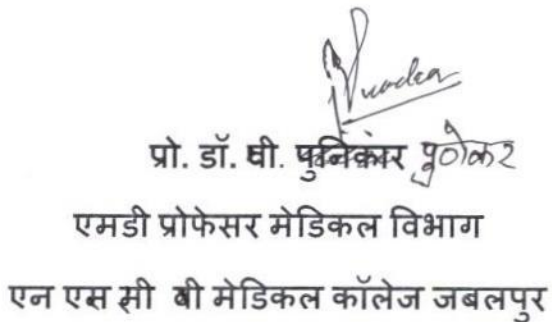 प्रो. डॉ. वी. पुनिकार पुणेकर
एमडी प्रोफेसर मेडिकल विभाग
एन एस सी बी मेडिकल कॉलेज जबलपुर